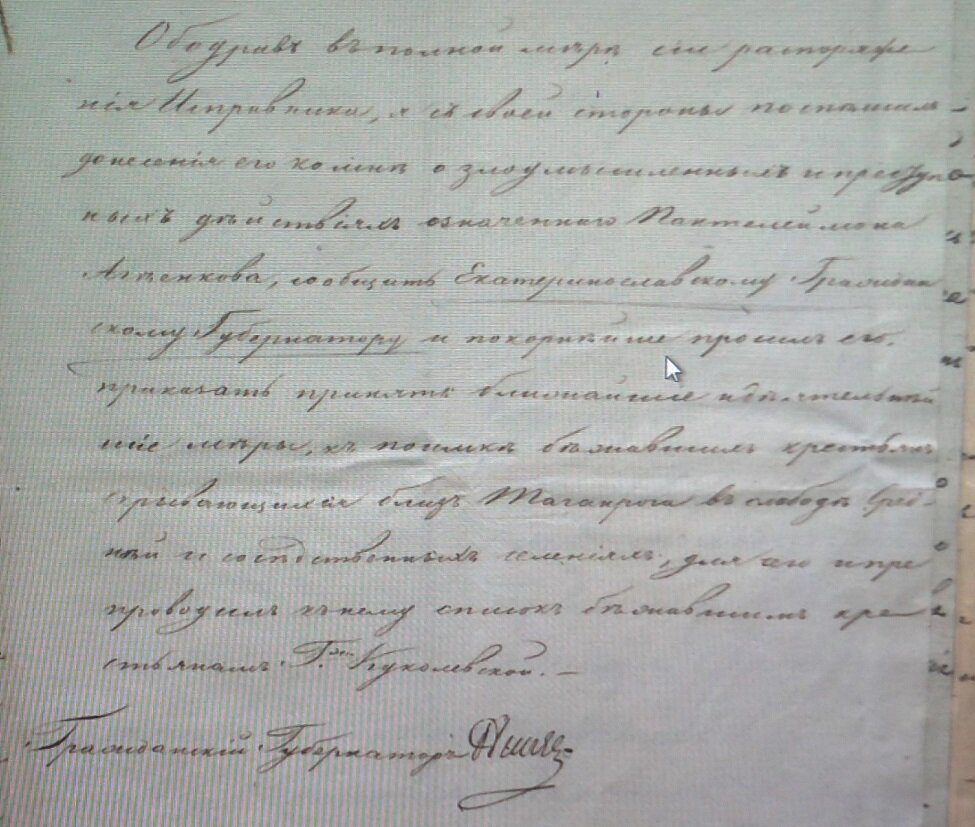 Ободривъ въ полной мѣрѣ сіе распоряже
нія Исправника, я съ своей стороны
донесенія его комнѣ о злоумышленныхъ и преступ
ныхъ дѣйствіяхъ означеннаго Пантелеймона
сообщить Екатеринославскому Граждан
скому Губернатору и покорнѣйше просилъ его,
приказать принять ближайшіе и дѣятельнѣй
шіе мѣры, къ поимкѣ бѣжавшимъ крестьянъ
скрывающихся близъ Таганрога въ слободѣ
и сосѣдственныхъ селеніяхъ, для чего и пре
проводилъ къ нему списокъ бѣжавшимъ кре
стьянамъ Г.жи Куколевской. —
Гражданскій Губернаторъ